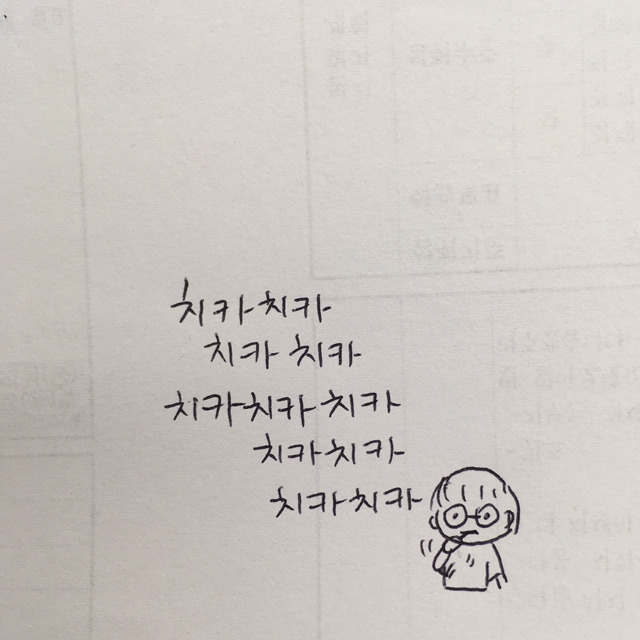 치카치카
치카 치카
치카치카 치카
치카치카
치카치카